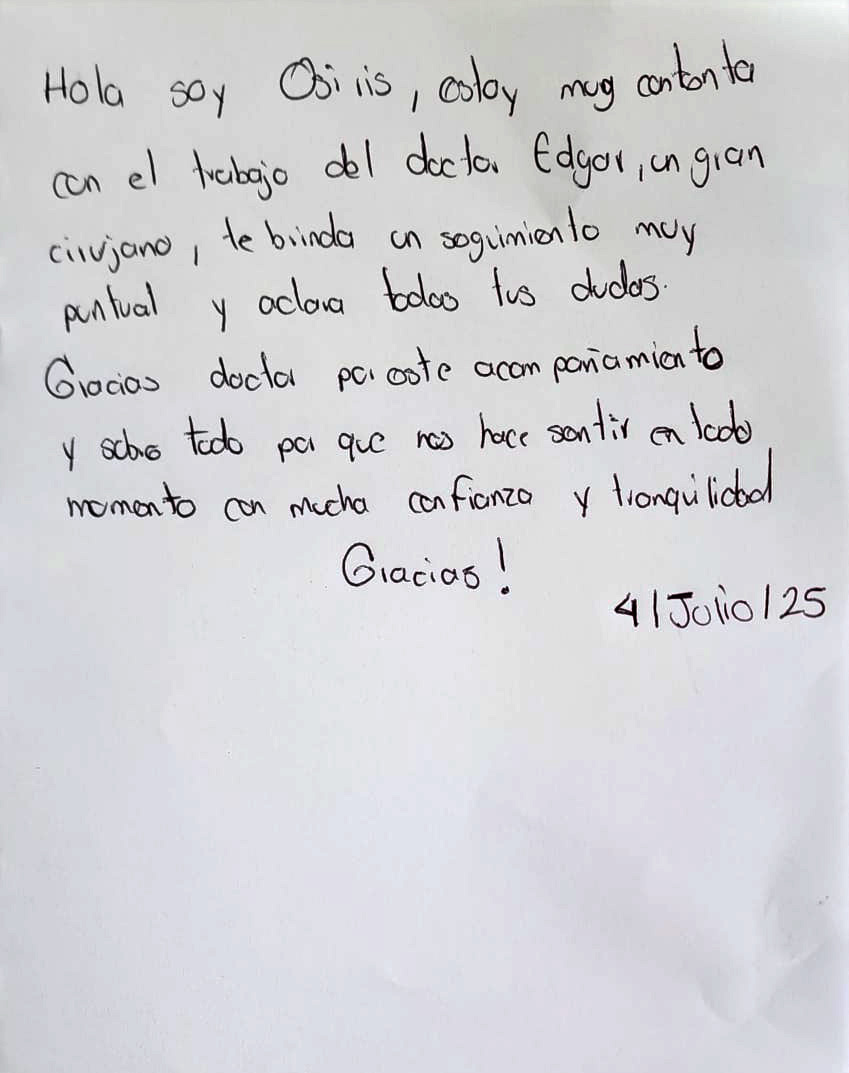 Hola soy Osiris, estoy muy contenta
con el trabajo del doctor Edgar, un gran
cirujano, te brinda un seguimiento muy
puntual y aclara todas tus dudas.
Gracias doctor por este acompañamiento
y sobre todo por que nos hace sentir en todo
momento con mucha confianza y tranquilidad
Gracias!
4/Julio/25